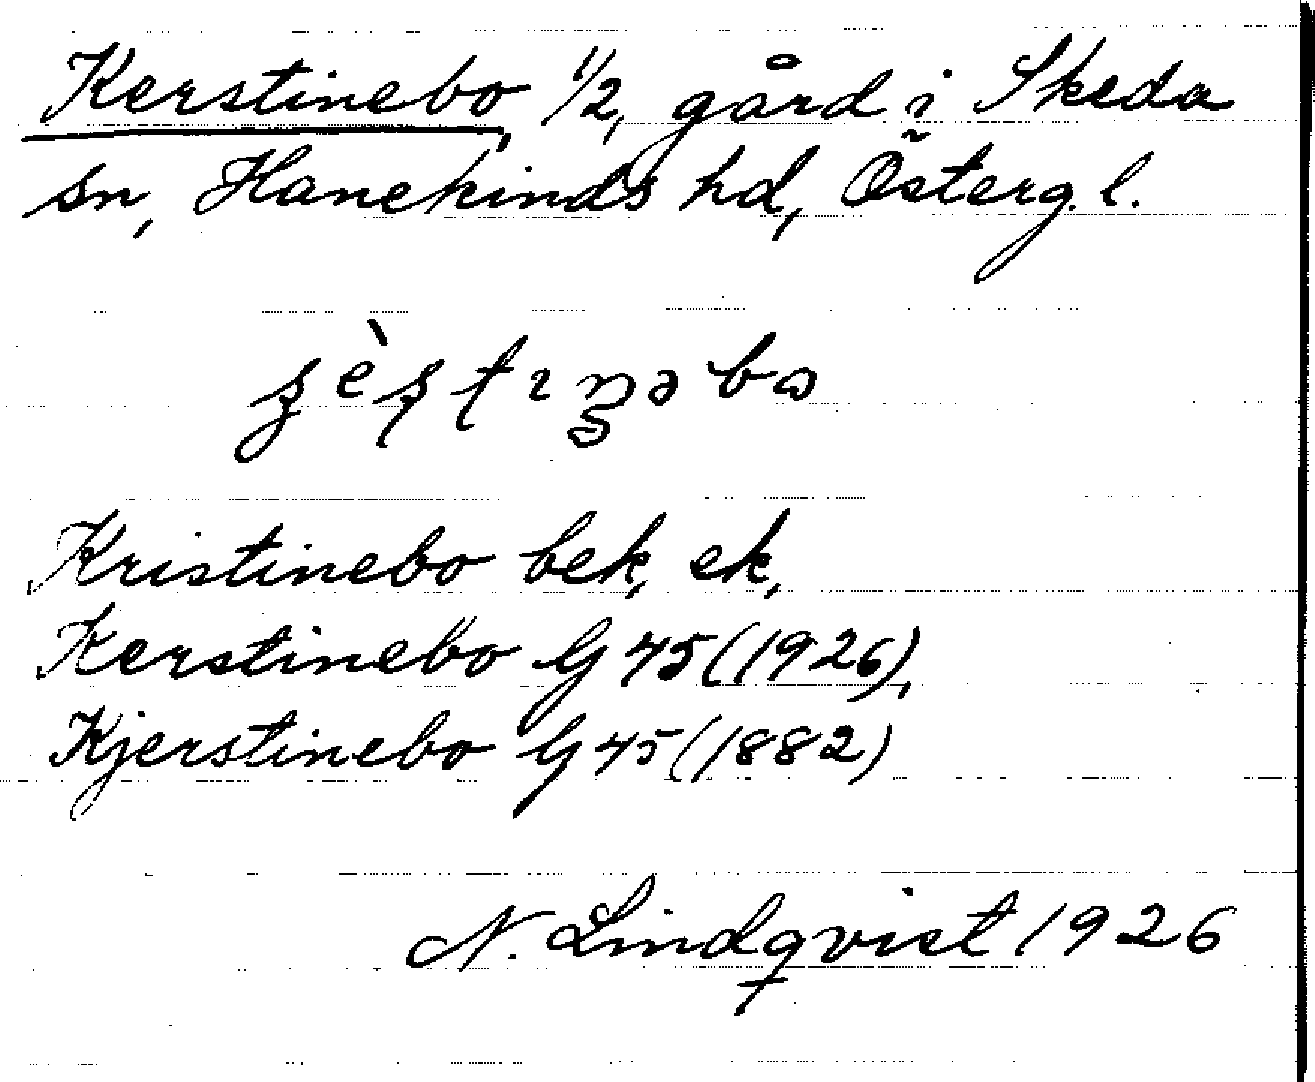 Kerstinebo, 1/2, gård i Skeda
sn, Hanekinds hd, Österg. l.
Kristinebo bek, ek,
Kerstinebo G 45 (1926),
Kjerstinebo G 45 (1882)
N. Lindqvist 1926